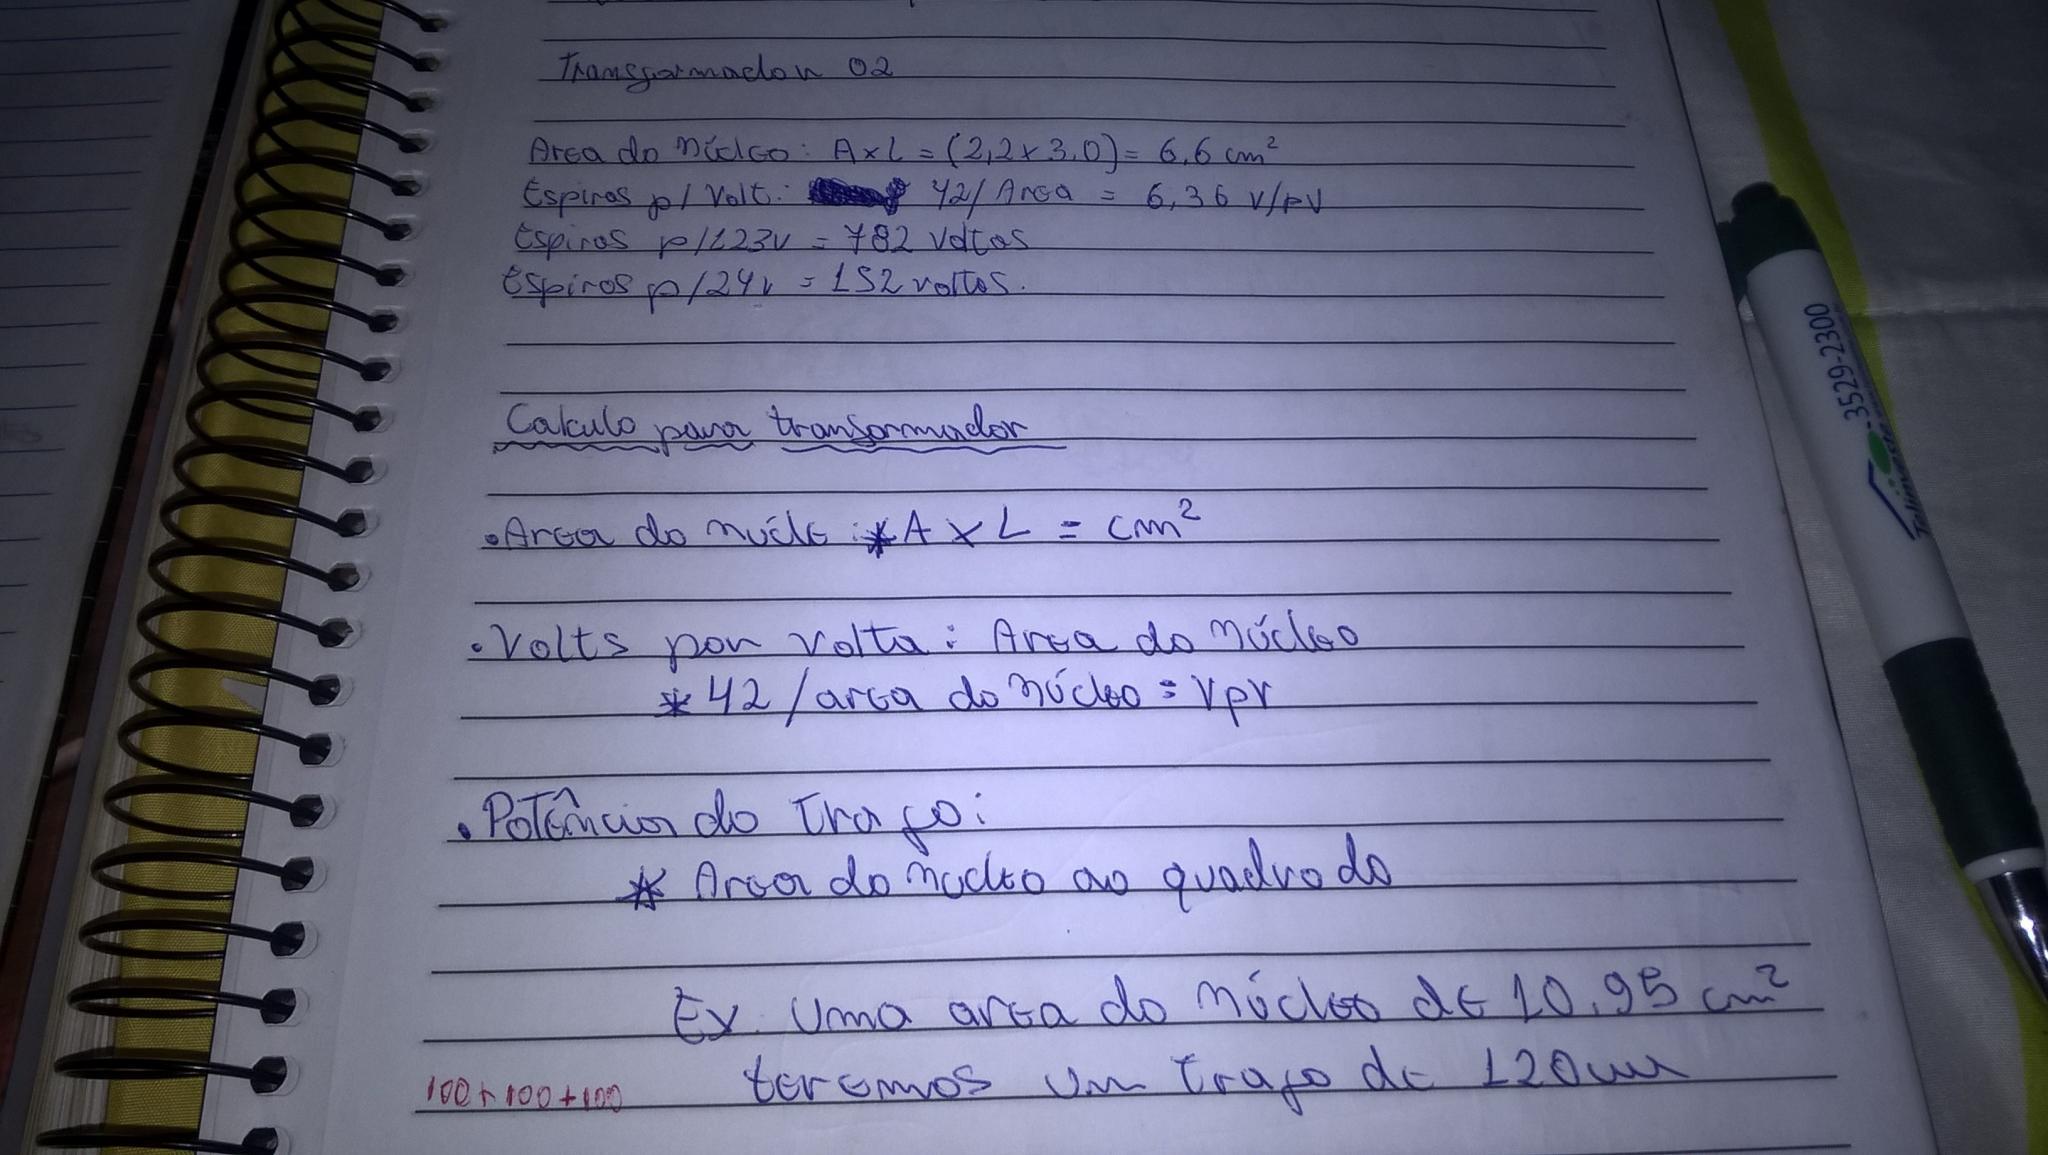 Transformador 02
Area do Núcleo: A x L = (2,2 x 3,0) = 6,6 cm²
Espiras p/ Volt: 42/ Area = 6,36 V/PV
Espiras p/123v = 782 voltas
Espiras p/24v = 152 voltas.
Calculo para transformador
• Area do núcle : * A x L = cm²
• Volts por volta : Area do Núcleo
* 42 / area do Núcleo = Vpv
• Potência do trafo:
* Area do nucleo ao quadrado
Ex. Uma area do Núcleo de 10,95 cm²
teremos um trafo de 120w
100+100+100
3529-2300